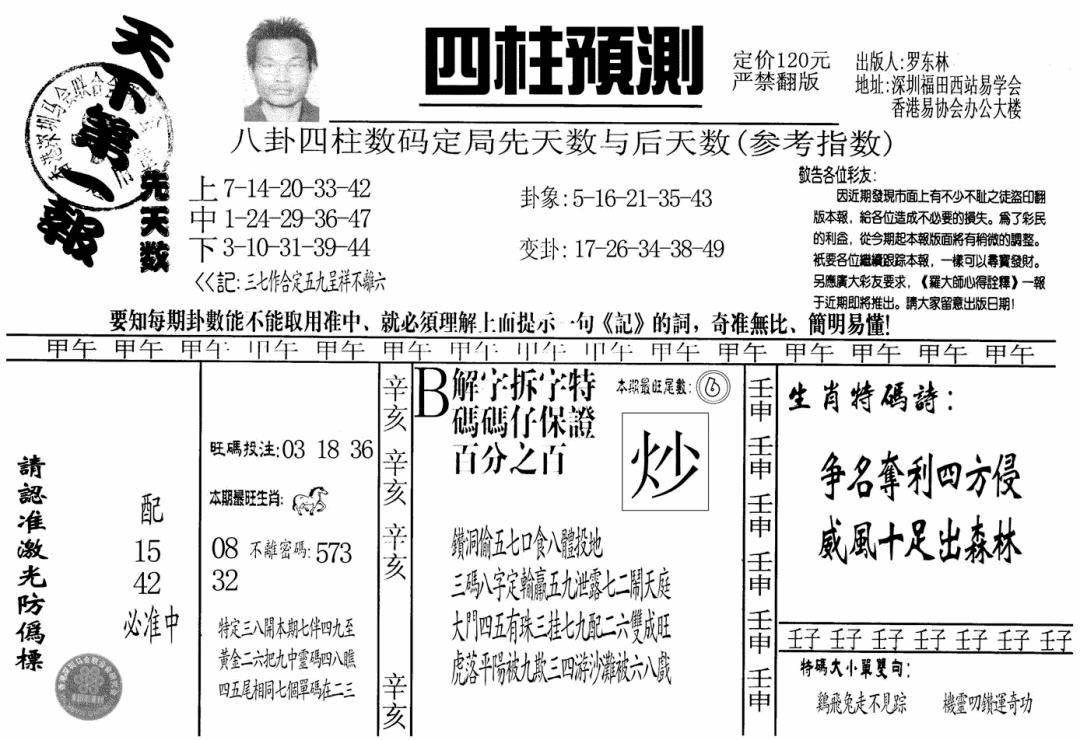 天下第一報
四柱預測
定价120元
严禁翻版
出版人:罗东林
地址:深圳福田西站易学会
香港易协会办公大楼
八卦四柱数码定局先天数与后天数(参考指数)
先天数
上7-14-20-33-42
中1-24-29-36-47
下3-10-31-39-44
<<記:三七作合定五九呈祥不離六
卦象:5-16-21-35-43
变卦:17-26-34-38-49
敬告各位彩友:
因近期發現市面上有不少不耻之徒盜印翻
版本報,給各位造成不必要的損失。爲了彩民
的利益,從今期起本報版面將有稍微的調整。
衹要各位繼續跟踪本報,一樣可以尋寶發財。
另應廣大彩友要求,《羅大師心得詮釋》一報
于近期即將推出。請大家留意出版日期!
要知每期卦數能不能取用准中、就必須理解上面提示一句《記》的詞,奇准無比、簡明易懂!
甲午 甲午 甲午 甲午 甲午 甲午 甲午 甲午 甲午 甲午 甲午 甲午 甲午 甲午 甲午
請認准激光防僞標
配
15
42
必准中
旺碼投注:03 18 36
本期最旺生肖:
08 不離密碼:573
32
特定三八開本期七伴四九至
黃金二六把九中靈碼四八瞧
四五尾相同七個單碼在二三
辛亥 辛亥 辛亥 辛亥
B解字拆字特
碼碼仔保證
百分之百
本期最旺尾數:6
炒
鑽洞偷五七口食八體投地
三碼八字定輸贏五九泄露七二鬧天庭
大門四五有珠三挂七九配二六雙成旺
虎落平陽被九欺三四游沙灘被六八戲
壬申 壬申 壬申 壬申 壬申 壬申
生肖特碼詩:
争名奪利四方侵
威風十足出森林
壬子 壬子 壬子 壬子 壬子 壬子 壬子
特碼大小單雙句:
鷄飛兔走不見踪 機靈叨鑽運奇功